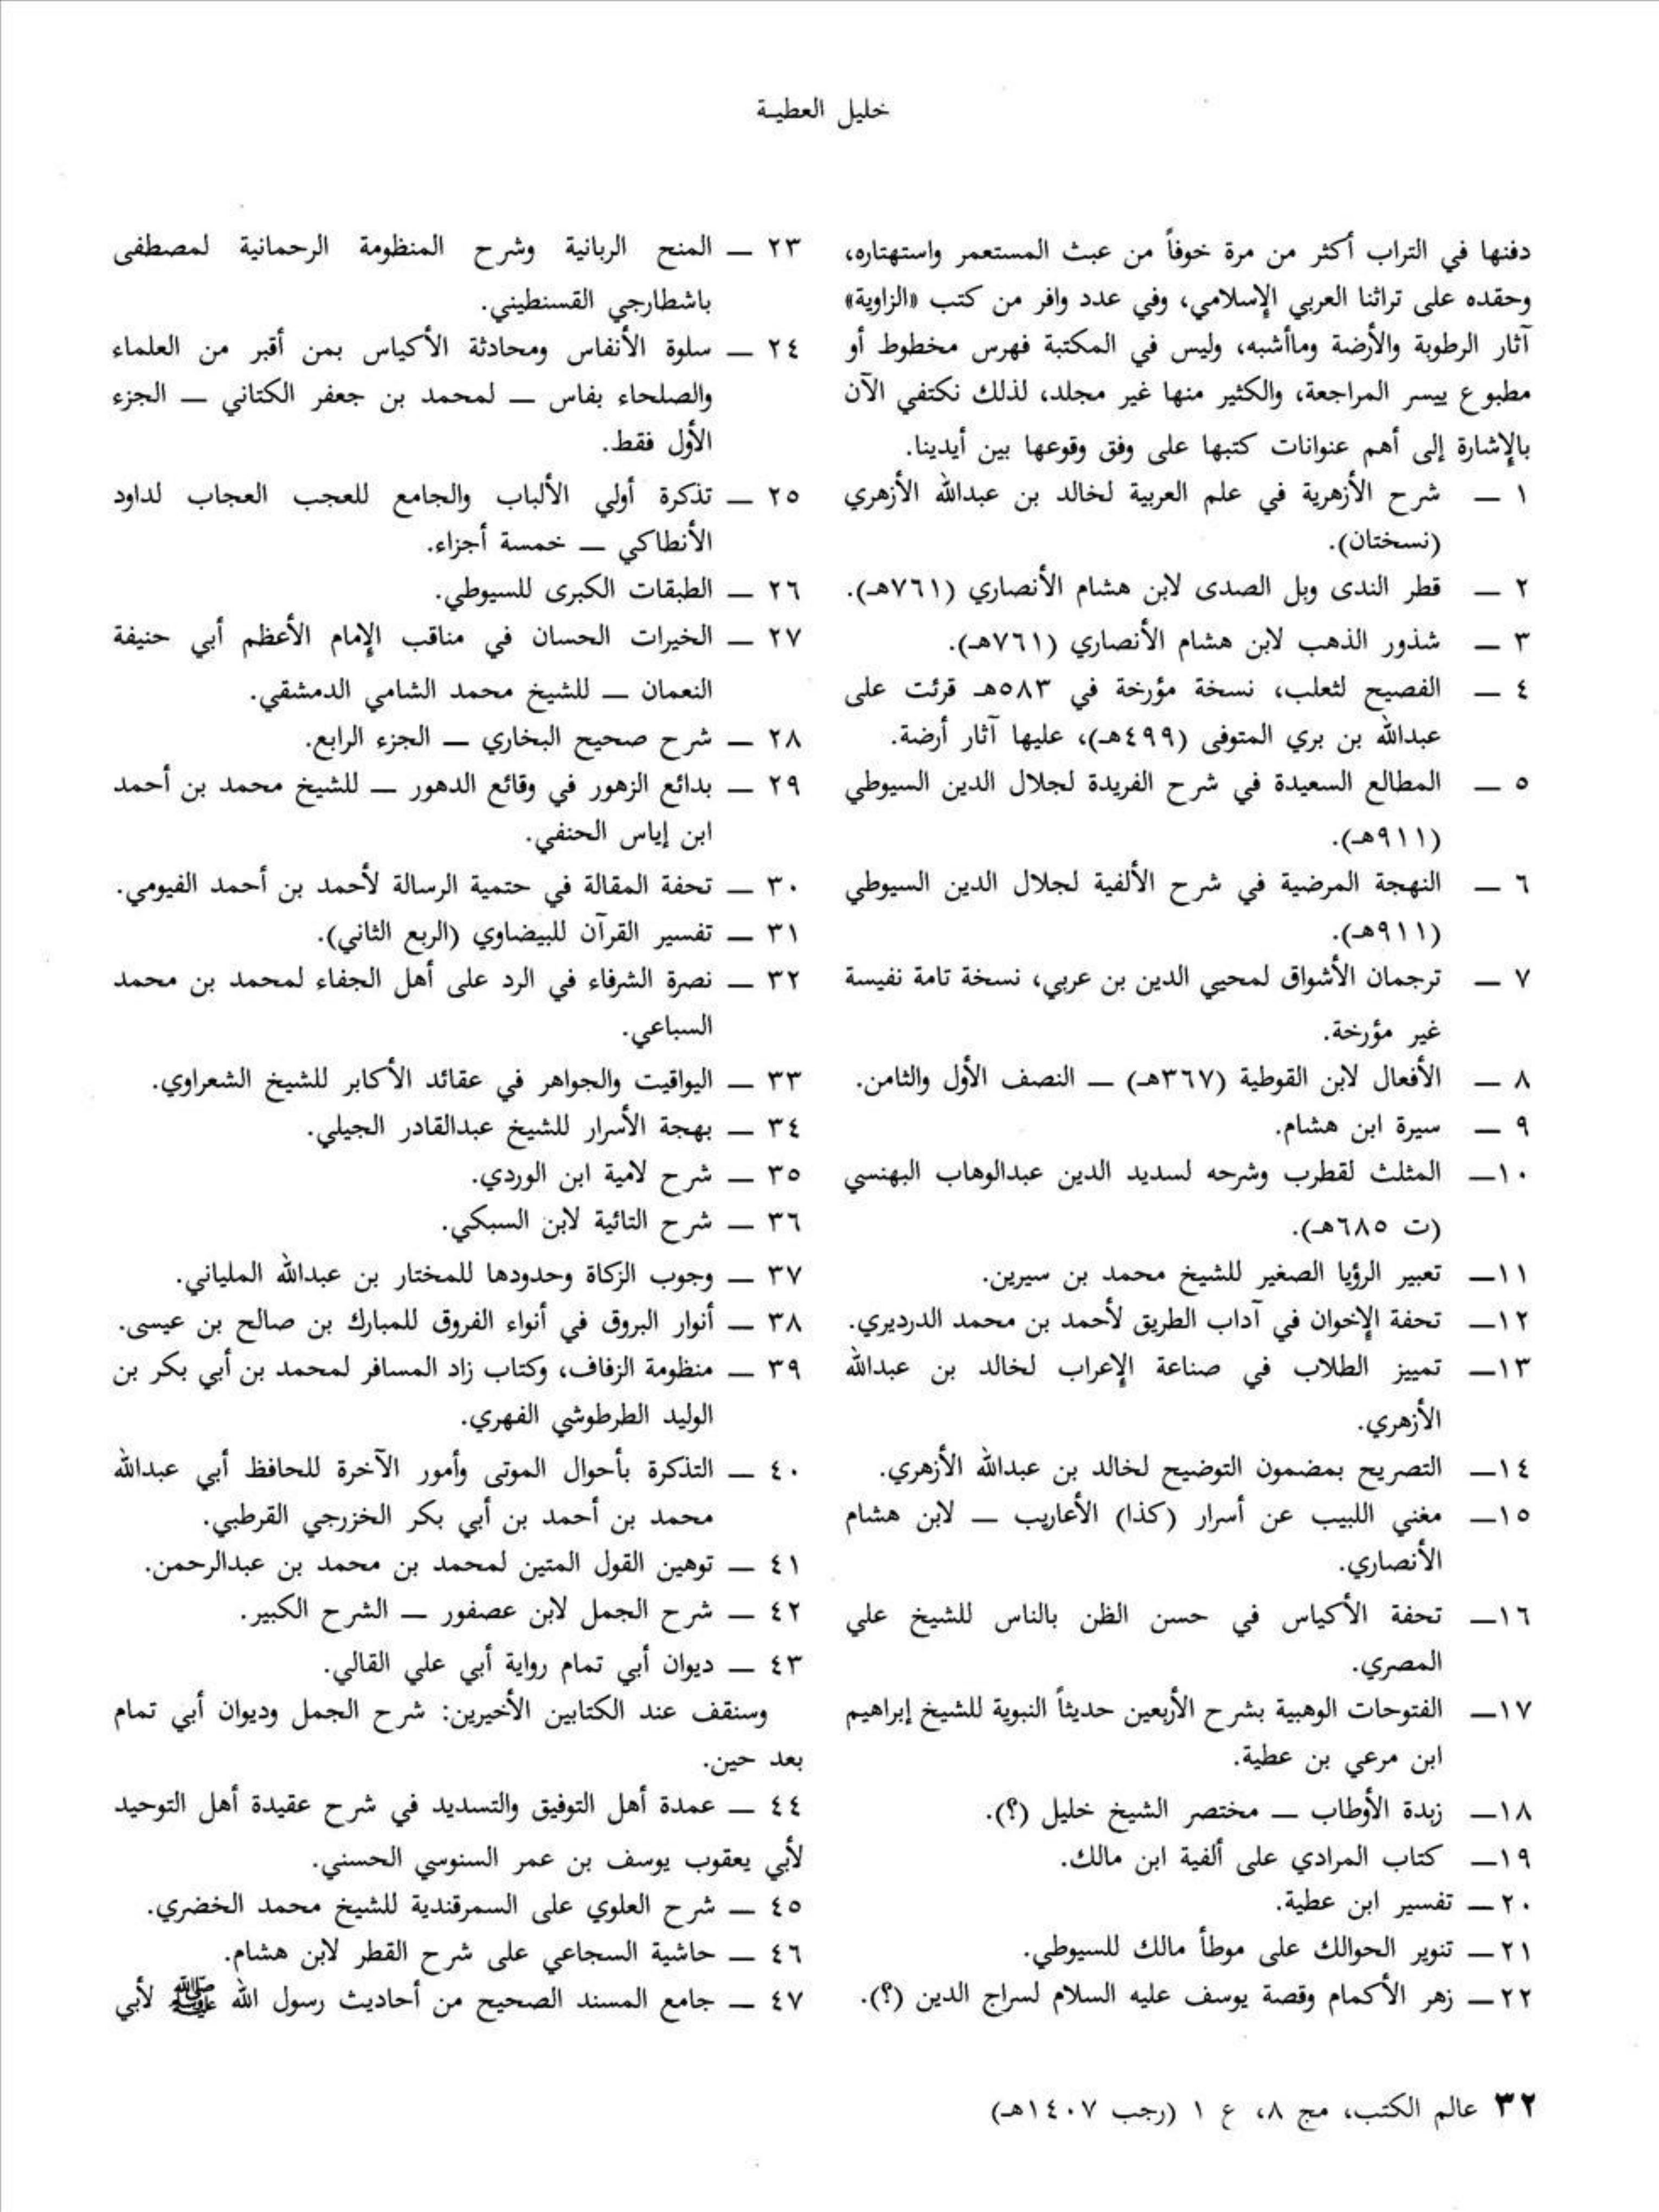 خليل العطيـة
دفنها في التراب أكثر من مرة خوفاً من عبث المستعمر واستهتاره،
وحقده على تراثنا العربي الإسلامي، وفي عدد وافر من كتب «الزاوية»
آثار الرطوبة والأرضة وماأشبه، وليس في المكتبة فهرس مخطوط أو
مطبوع ييسر المراجعة، والكثير منها غير مجلد، لذلك نكتفي الآن
بالإشارة إلى أهم عنوانات كتبها على وفق وقوعها بين أيدينا.
١ — شرح الأزهرية في علم العربية لخالد بن عبدالله الأزهري
(نسختان).
٢ — قطر الندى وبل الصدى لابن هشام الأنصاري (٧٦١هـ).
٣ — شذور الذهب لابن هشام الأنصاري (٧٦١هـ).
٤ — الفصيح لثعلب، نسخة مؤرخة في ٥٨٣هـ قرئت على
عبدالله بن بري المتوفى (٤٩٩هـ)، عليها آثار أرضة.
٥ — المطالع السعيدة في شرح الفريدة لجلال الدين السيوطي
(٩١١هـ).
٦ — النهجة المرضية في شرح الألفية لجلال الدين السيوطي
(٩١١هـ).
٧ — ترجمان الأشواق لمحيي الدين بن عربي، نسخة تامة نفيسة
غير مؤرخة.
٨ — الأفعال لابن القوطية (٣٦٧هـ) — النصف الأول والثامن.
٩ — سيرة ابن هشام.
١٠— المثلث لقطرب وشرحه لسديد الدين عبدالوهاب البهنسي
(ت ٦٨٥هـ).
١١— تعبير الرؤيا الصغير للشيخ محمد بن سيرين.
١٢— تحفة الإخوان في آداب الطريق لأحمد بن محمد الدرديري.
١٣— تمييز الطلاب في صناعة الإعراب لخالد بن عبدالله
الأزهري.
١٤— التصريح بمضمون التوضيح لخالد بن عبدالله الأزهري.
١٥— مغني اللبيب عن أسرار (كذا) الأعاريب — لابن هشام
الأنصاري.
١٦— تحفة الأكياس في حسن الظن بالناس للشيخ علي
المصري.
١٧— الفتوحات الوهبية بشرح الأربعين حديثاً النبوية للشيخ إبراهيم
ابن مرعي بن عطية.
١٨— زبدة الأوطاب — مختصر الشيخ خليل (؟).
١٩— كتاب المرادي على ألفية ابن مالك.
٢٠— تفسير ابن عطية.
٢١— تنوير الحوالك على موطأ مالك للسيوطي.
٢٢— زهر الأكمام وقصة يوسف عليه السلام لسراج الدين (؟).
٢٣ — المنح الربانية وشرح المنظومة الرحمانية لمصطفى
باشطارجي القسنطيني.
٢٤ — سلوة الأنفاس ومحادثة الأكياس بمن أقبر من العلماء
والصلحاء بفاس — لمحمد بن جعفر الكتاني — الجزء
الأول فقط.
٢٥ — تذكرة أولي الألباب والجامع للعجب العجاب لداود
الأنطاكي — خمسة أجزاء.
٢٦ — الطبقات الكبرى للسيوطي.
٢٧ — الخيرات الحسان في مناقب الإمام الأعظم أبي حنيفة
النعمان — للشيخ محمد الشامي الدمشقي.
٢٨ — شرح صحيح البخاري — الجزء الرابع.
٢٩ — بدائع الزهور في وقائع الدهور — للشيخ محمد بن أحمد
ابن إياس الحنفي.
٣٠ — تحفة المقالة في حتمية الرسالة لأحمد بن أحمد الفيومي.
٣١ — تفسير القرآن للبيضاوي (الربع الثاني).
٣٢ — نصرة الشرفاء في الرد على أهل الجفاء لمحمد بن محمد
السباعي.
٣٣ — اليواقيت والجواهر في عقائد الأكابر للشيخ الشعراوي.
٣٤ — بهجة الأسرار للشيخ عبدالقادر الجيلي.
٣٥ — شرح لامية ابن الوردي.
٣٦ — شرح التائية لابن السبكي.
٣٧ — وجوب الزكاة وحدودها للمختار بن عبدالله الملياني.
٣٨ — أنوار البروق في أنواء الفروق للمبارك بن صالح بن عيسى.
٣٩ — منظومة الزفاف، وكتاب زاد المسافر لمحمد بن أبي بكر بن
الوليد الطرطوشي الفهري.
٤٠ — التذكرة بأحوال الموتى وأمور الآخرة للحافظ أبي عبدالله
محمد بن أحمد بن أبي بكر الخزرجي القرطبي.
٤١ — توهين القول المتين لمحمد بن محمد بن عبدالرحمن.
٤٢ — شرح الجمل لابن عصفور — الشرح الكبير.
٤٣ — ديوان أبي تمام رواية أبي علي القالي.
وسنقف عند الكتابين الأخيرين: شرح الجمل وديوان أبي تمام
بعد حين.
٤٤ — عمدة أهل التوفيق والتسديد في شرح عقيدة أهل التوحيد
لأبي يعقوب يوسف بن عمر السنوسي الحسني.
٤٥ — شرح العلوي على السمرقندية للشيخ محمد الخضري.
٤٦ — حاشية السجاعي على شرح القطر لابن هشام.
٤٧ — جامع المسند الصحيح من أحاديث رسول الله ﷺ لأبي
٣٢ عالم الكتب، مج ٨، ع ١ (رجب ١٤٠٧هـ)